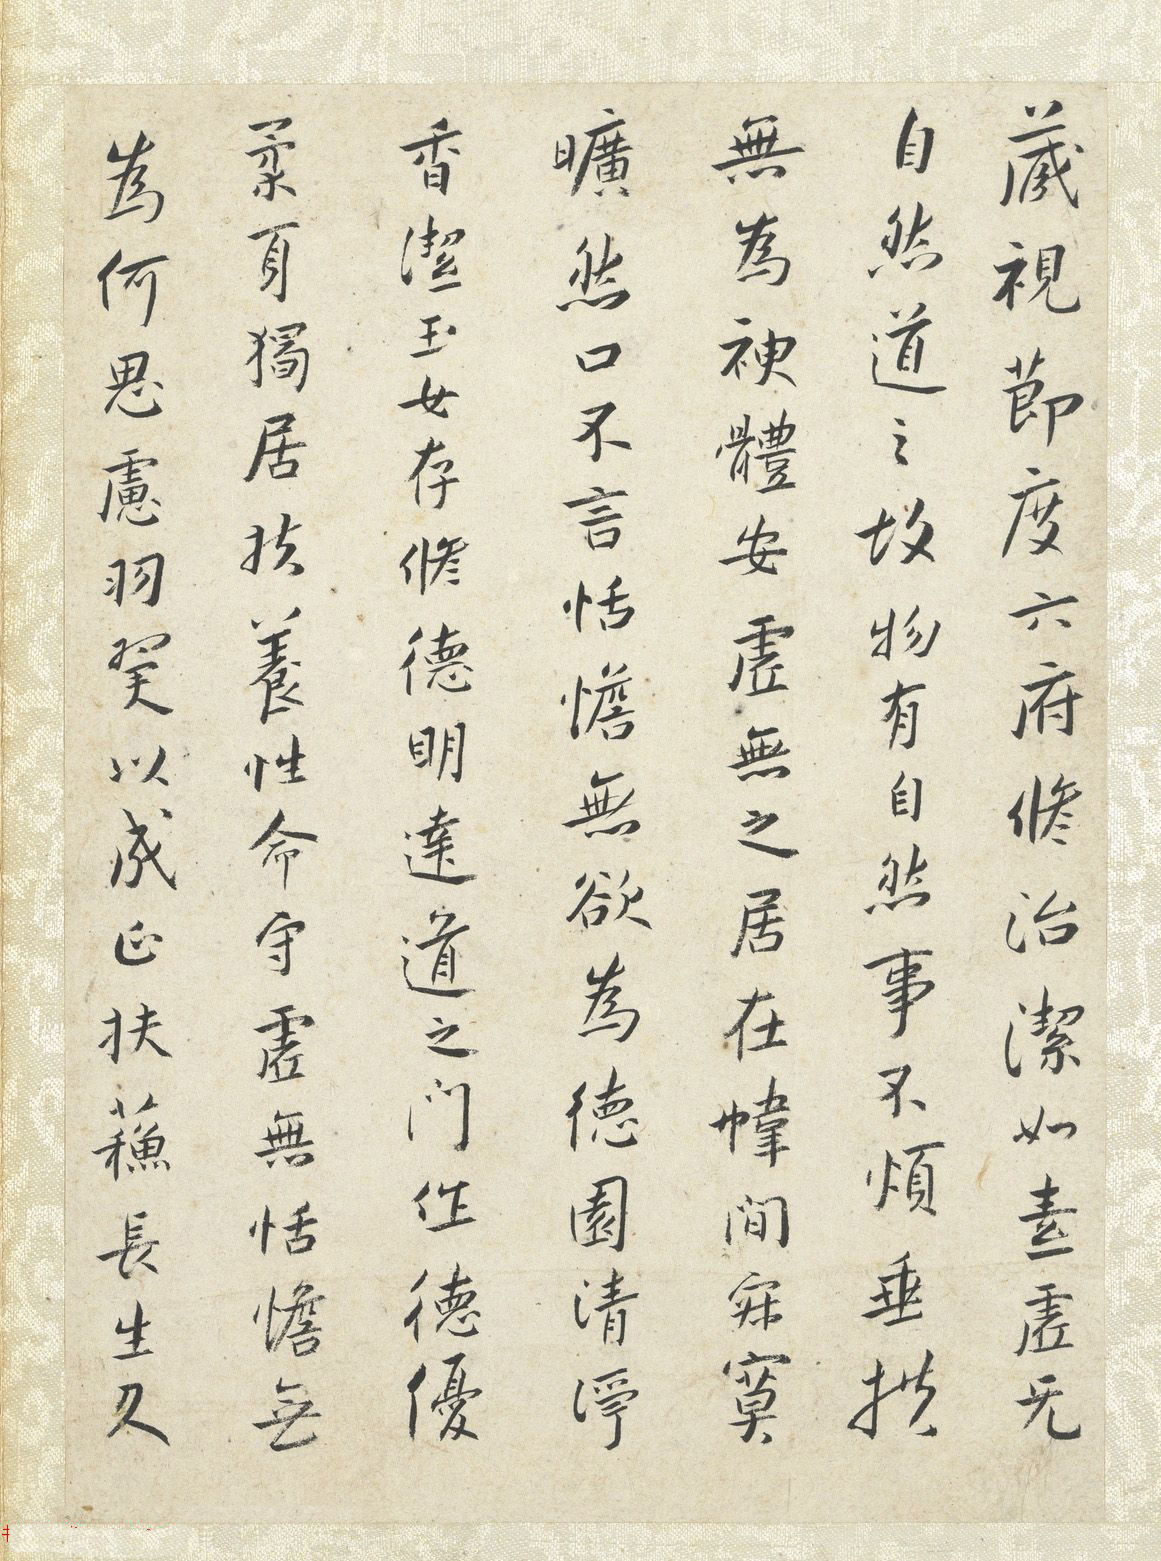 蔵視節度六府脩治潔如素虛无
自然道之故物有自然事不煩垂拱
無為神體安虛無之居在幃間寂寞
曠然口不言恬憺無欲為德園清淨
香潔玉女存脩德明達道之門作德優
柔身獨居扶養性命守虛無恬憺無
為何思慮羽翼以成正扶蘓長生久